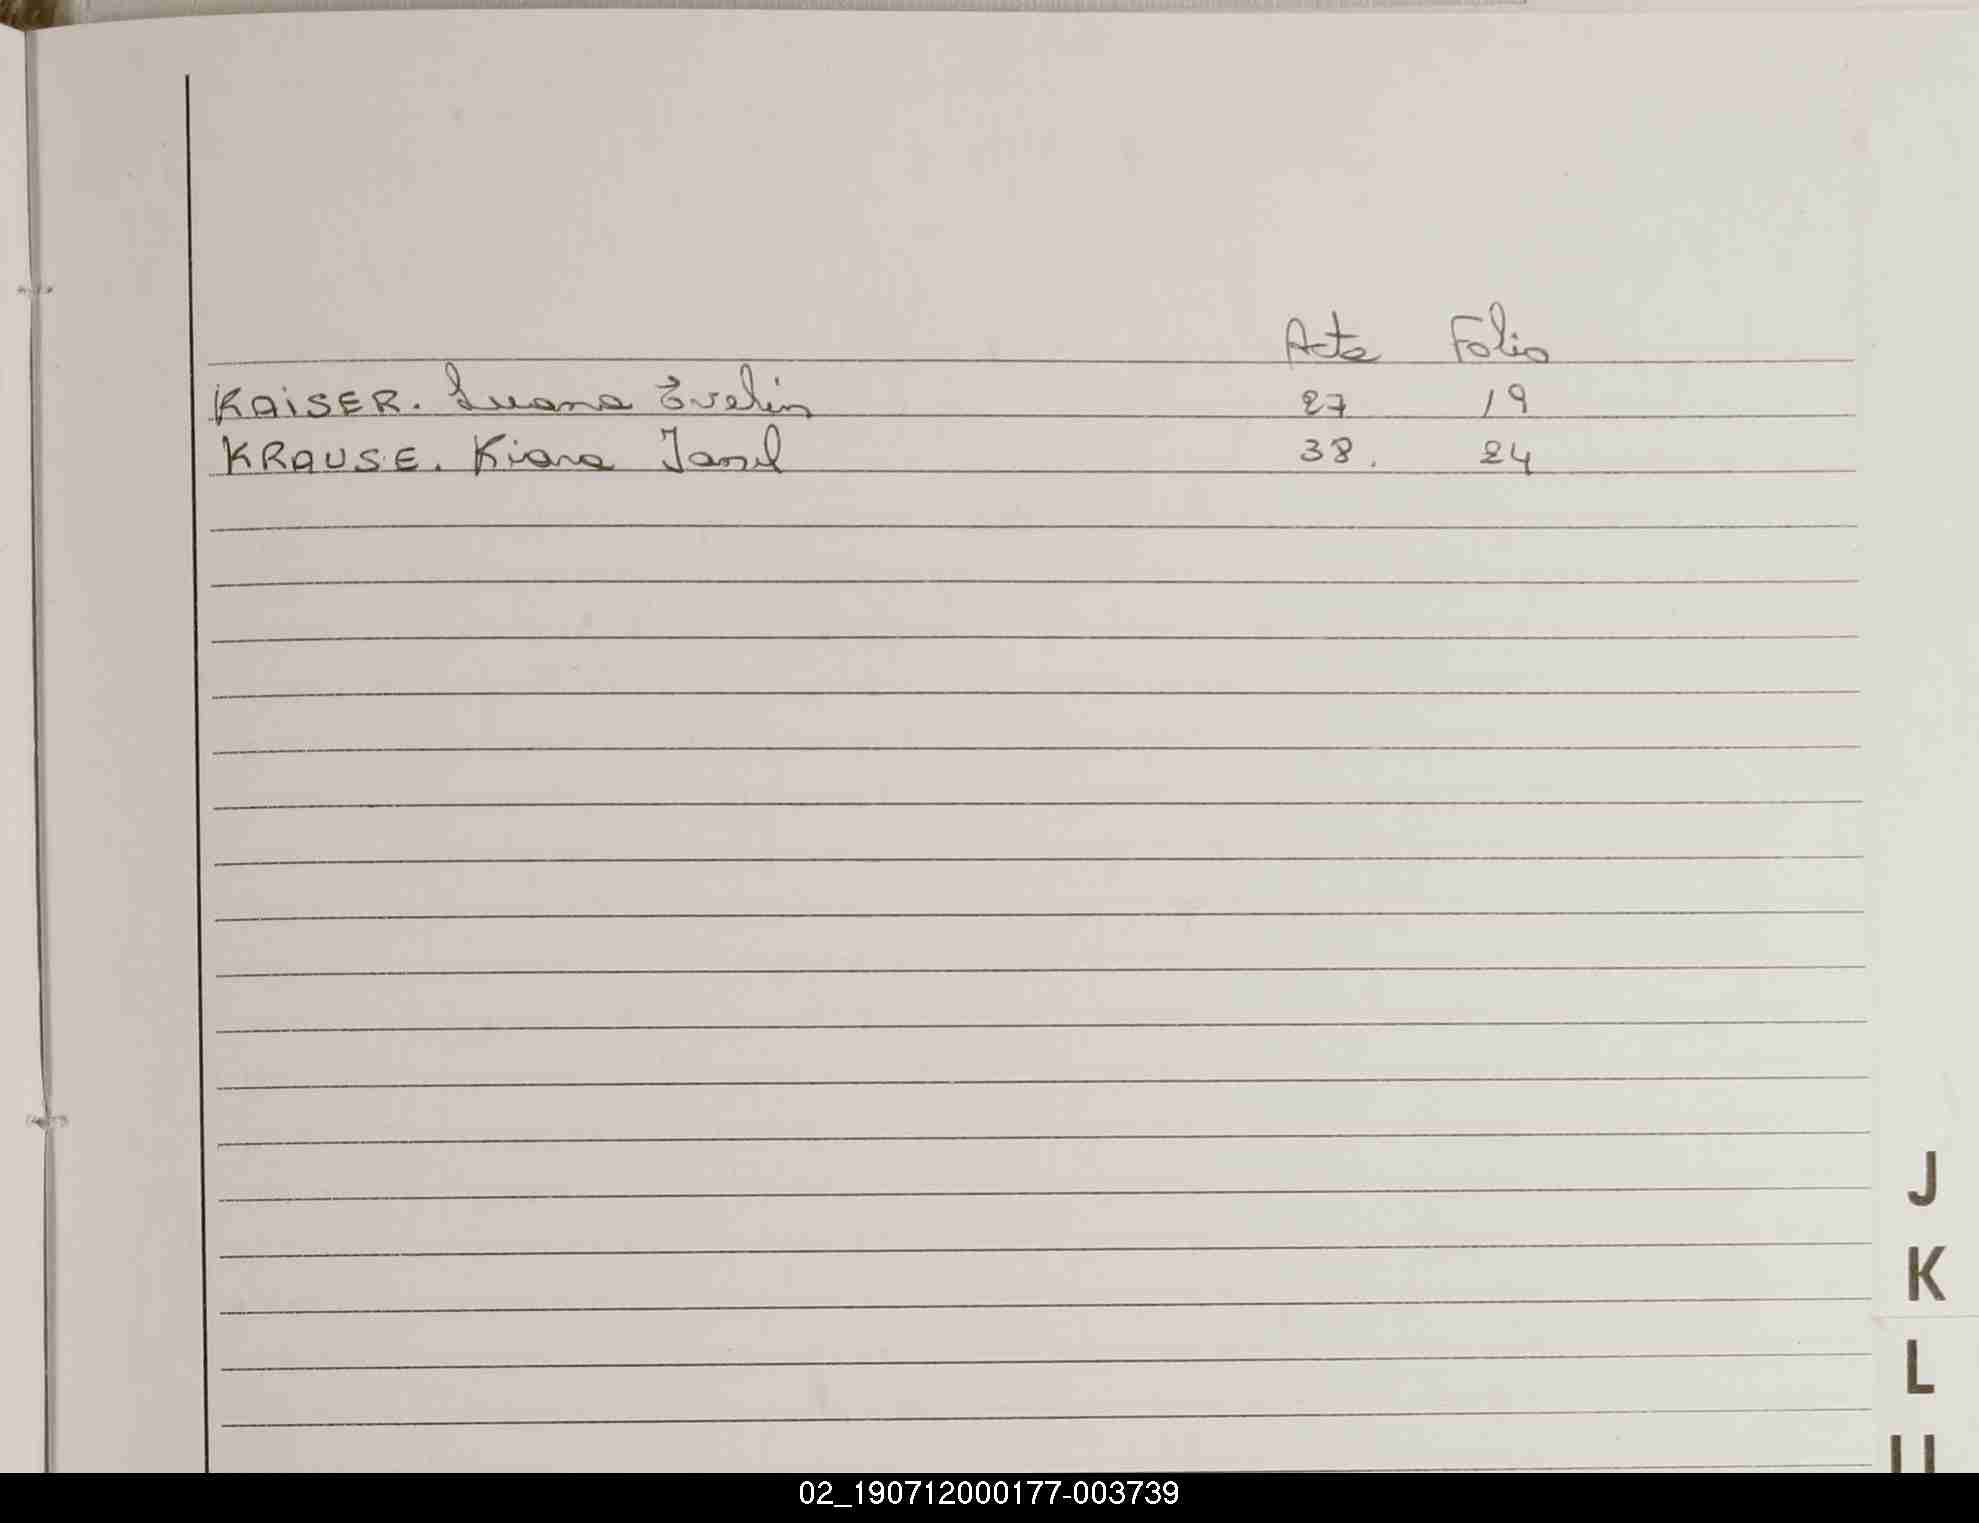 Acta Folio
KAiSER. Luana Evelin 27 19
KRAUSE. Kiara Janel 38. 24
J
K
L
LL
02_190712000177-003739